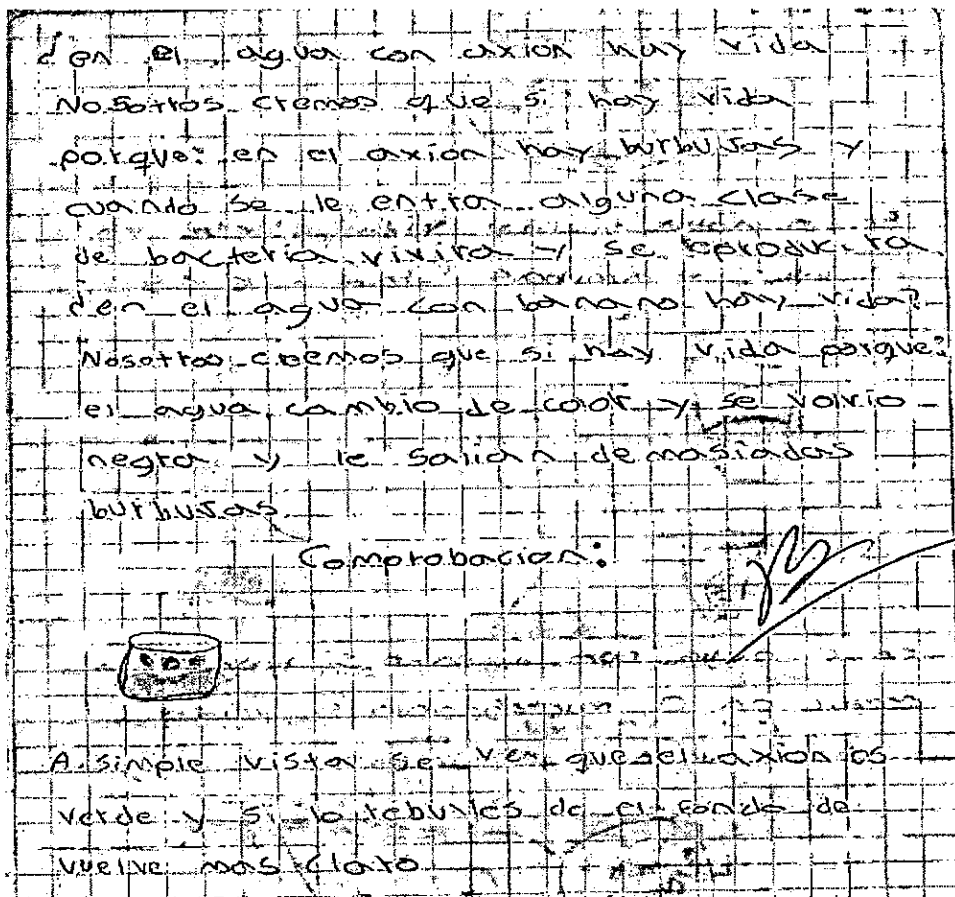 ¿en el agua con axion hay vida
Nosotros cremos que si hay vida
porque: en el axion hay burbujas y
cuando se le entra alguna clase
de bacteria vivira y se reproducira
¿en el agua con banano hay vida?
Nosotros creemos que si hay vida porque:
el agua cambio de color y se volvio
negra y le salian demasiadas
burbujas
Comprobacion:
A simple vista se ve que el axion es
verde y si lo rebulles de el fondo de
vuelve mas claro